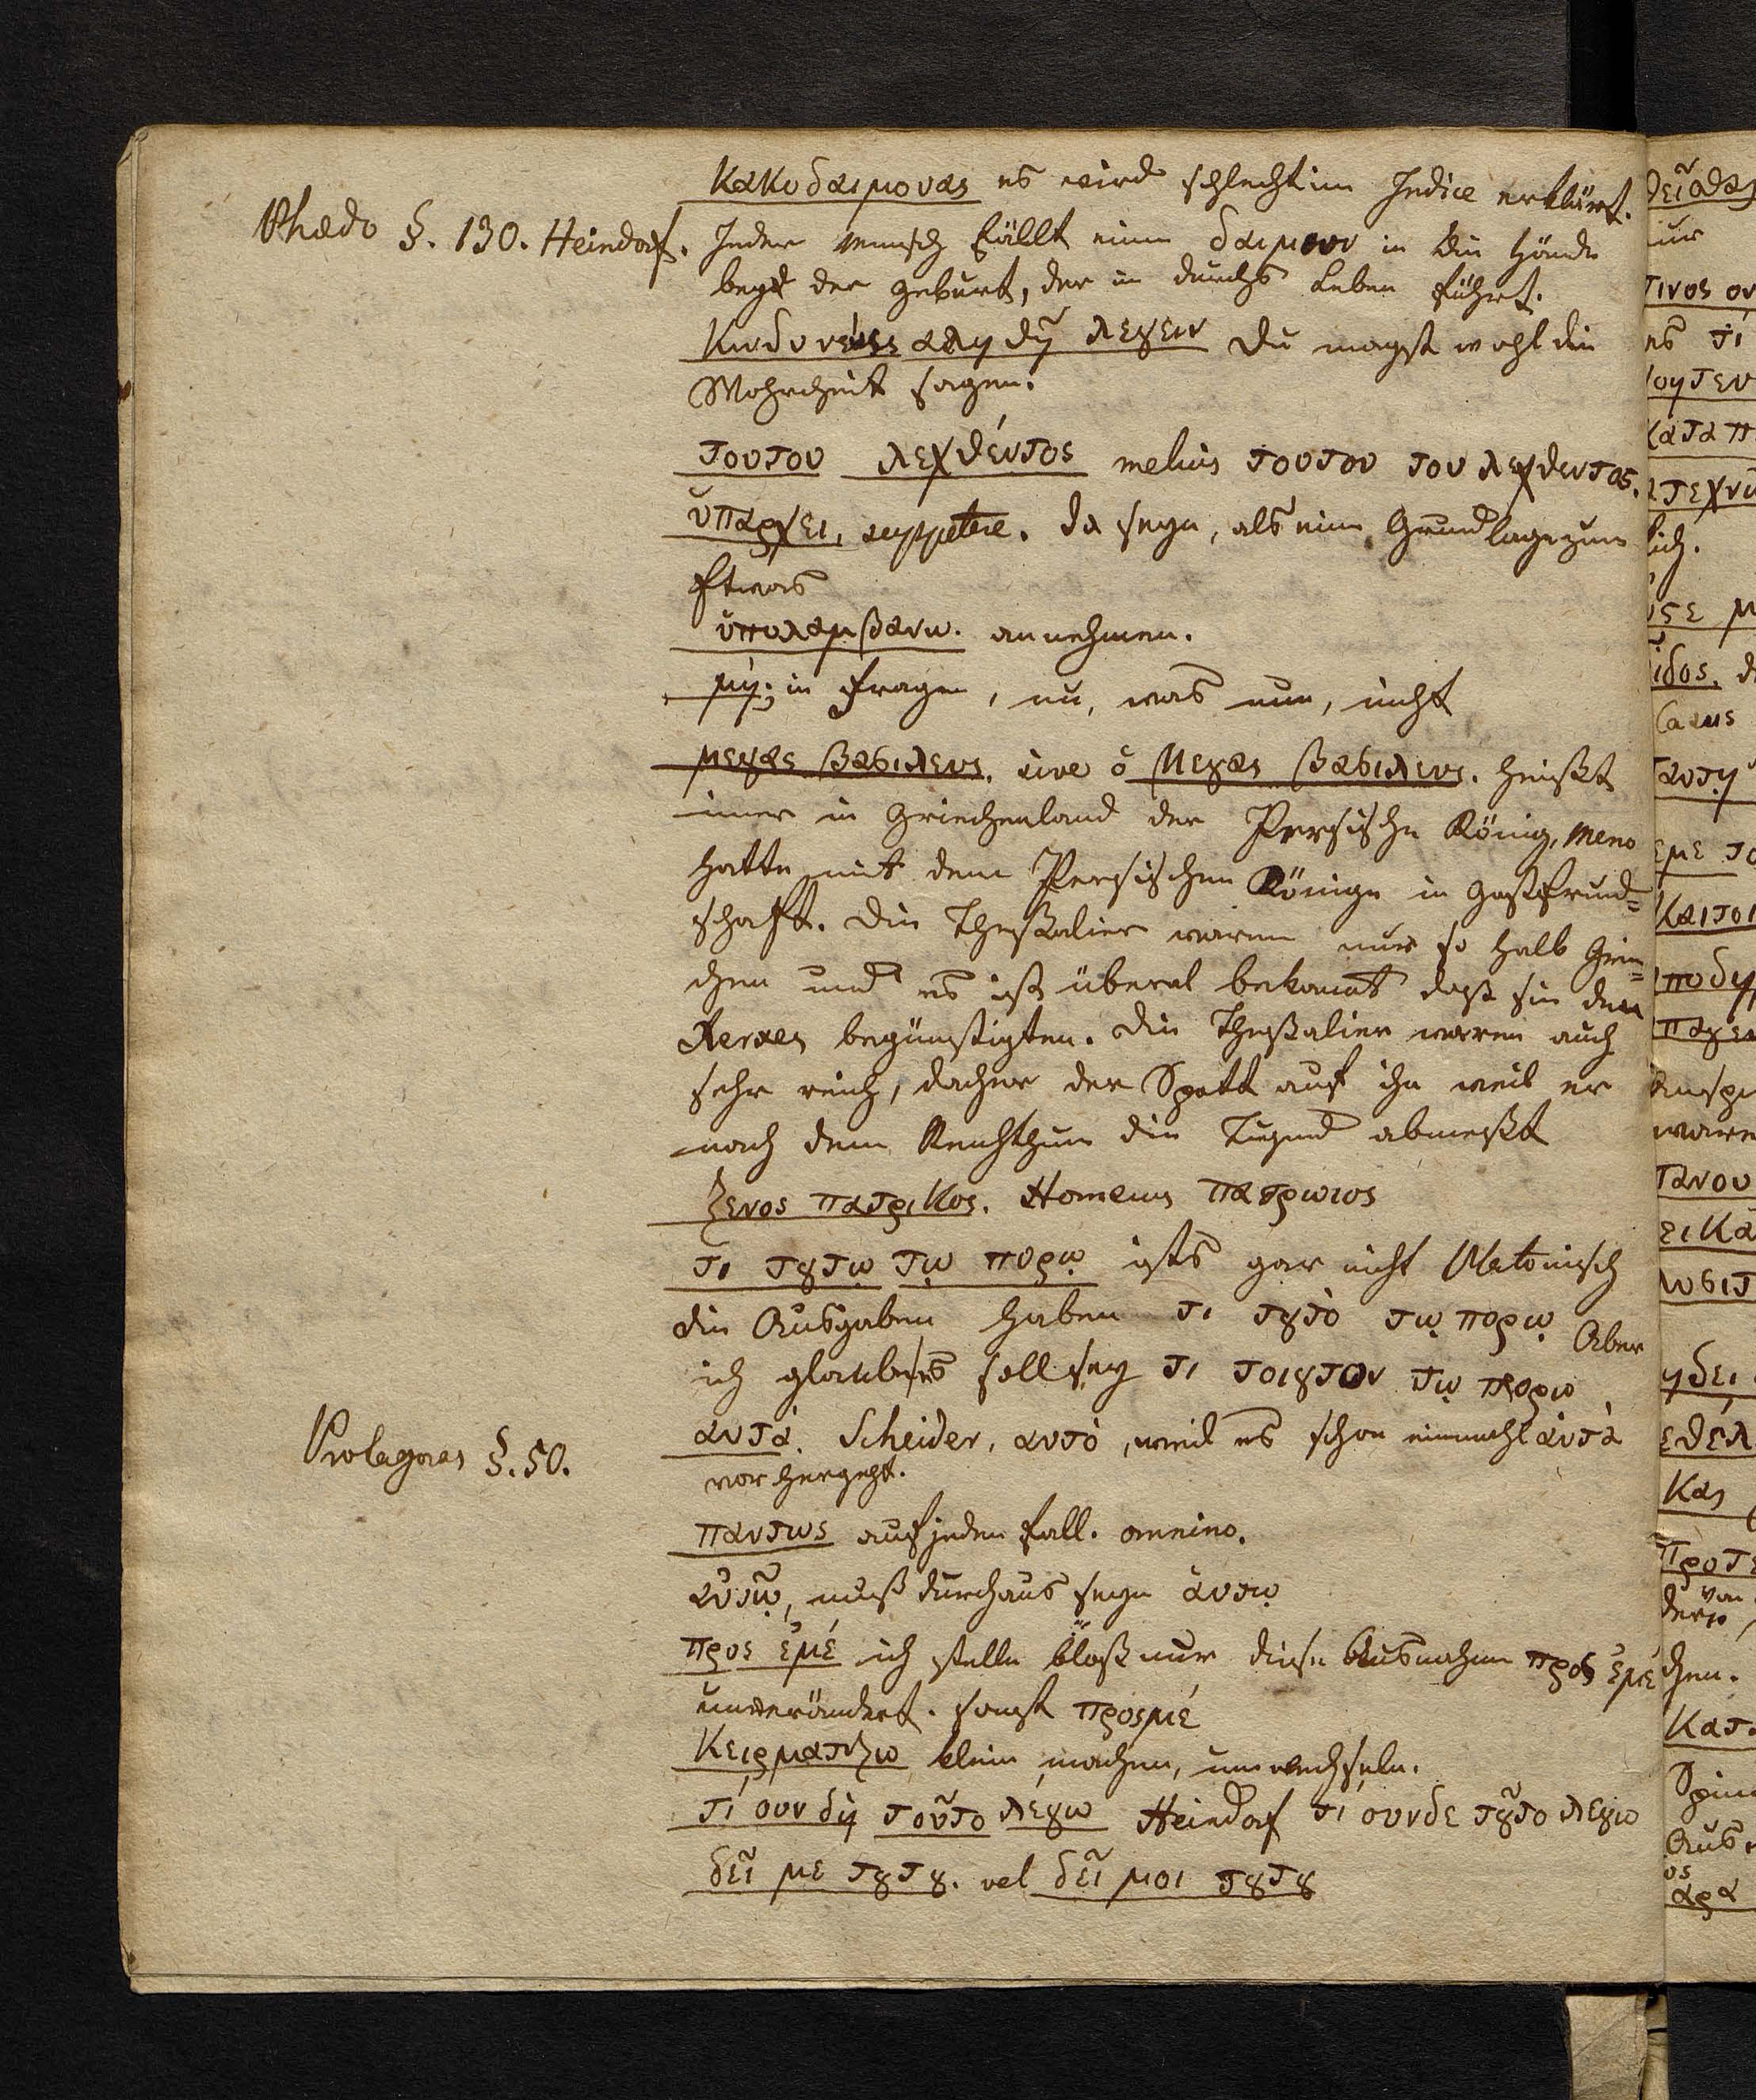 Κακοδαιμονας es wird schlecht im Indice erklärt.
Phædo §. 130. Heindorf. Jeder Mensch fällt einem δαιμων in die Hände
bey der Geburt, der in durchs Leben führt.
Κινδυνευεις αληθη λεγειν Du magst wohl die
Wahrheit sagen.
τουτου λεχθέντος melius τουτου του λεχθεντος.
ὑπαρχει, suppetere. da seyn, als eine Grundlage zum
Etwas
ὑπολαμβανω. annehmen.
μή; in Fragen, nu, was nun, nicht
μεγας βασιλευς, sive ὁ Μεγας βασιλευς. heißt
immer in Griechenland der Persische König, Meno
hatte mit dem Persischen Könige in Gastfreund=
schaft. Die Theßalier waren nur so halb Grie=
chen und es ist überal bekannt daß sie den
Xerxes begünstigten. Die Theßalier waren auch
sehr reich, dacher der Spott auf ihn weil er
nach dem Reichthum die Tugend abmeßt
ξενος πατρικος. Homerus πατρωιος
τι τȣτῳ τῳ πορῳ ists gar nicht Platonisch
die Ausgaben haben τι τȣτο τῳ πορῳ Aber
ich glaube es soll sey τι τοιȣτον τῳ πορῳ
Protagoras §. 50. αυτά. Scheider, αυτὸ, weil es schon einmahl αὐτὰ
vorhergeht.
παντως auf jeden Fall. omnino.
αὐτῷ, muß durchaus seyn αυτῳ
προς ἐμέ ich stelle bloß nur diese Ausnahme προς ἐμέ
unverändert. sonst προςμέ
Κερματιζω klein machen, umwechseln.
τί ουν δὴ τοῦτο λέγω Heindorf τι ουνδε τȣ͂το λεγω
δεῖ με τȣτȣ. vel δεῖ μοι τȣτȣ